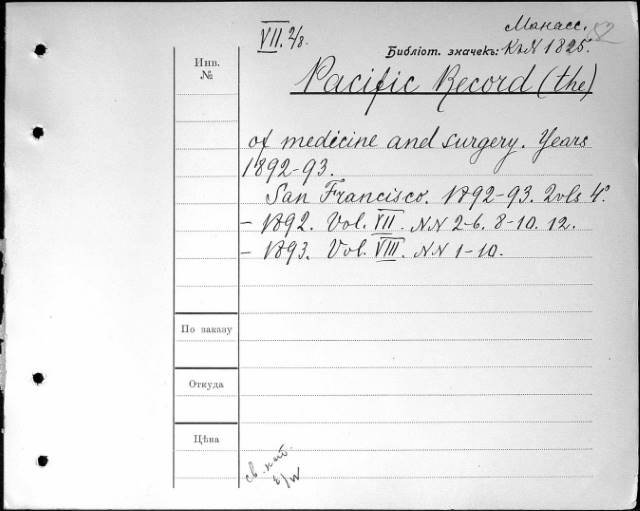 VII. 2/8.
Манасс.
Библіот. значекъ: К.N 1825.
Инв.
№
Pacific Record (the)
of medicine and surgery. Years
1892-93.
San Francisco. 1892-93. 2vls 4º.
- 1892. Vol. VII. NN 2-6. 8-10. 12.
- 1893. Vol. VIII. NN 1-10.
По заказу
Откуда
Цѣна